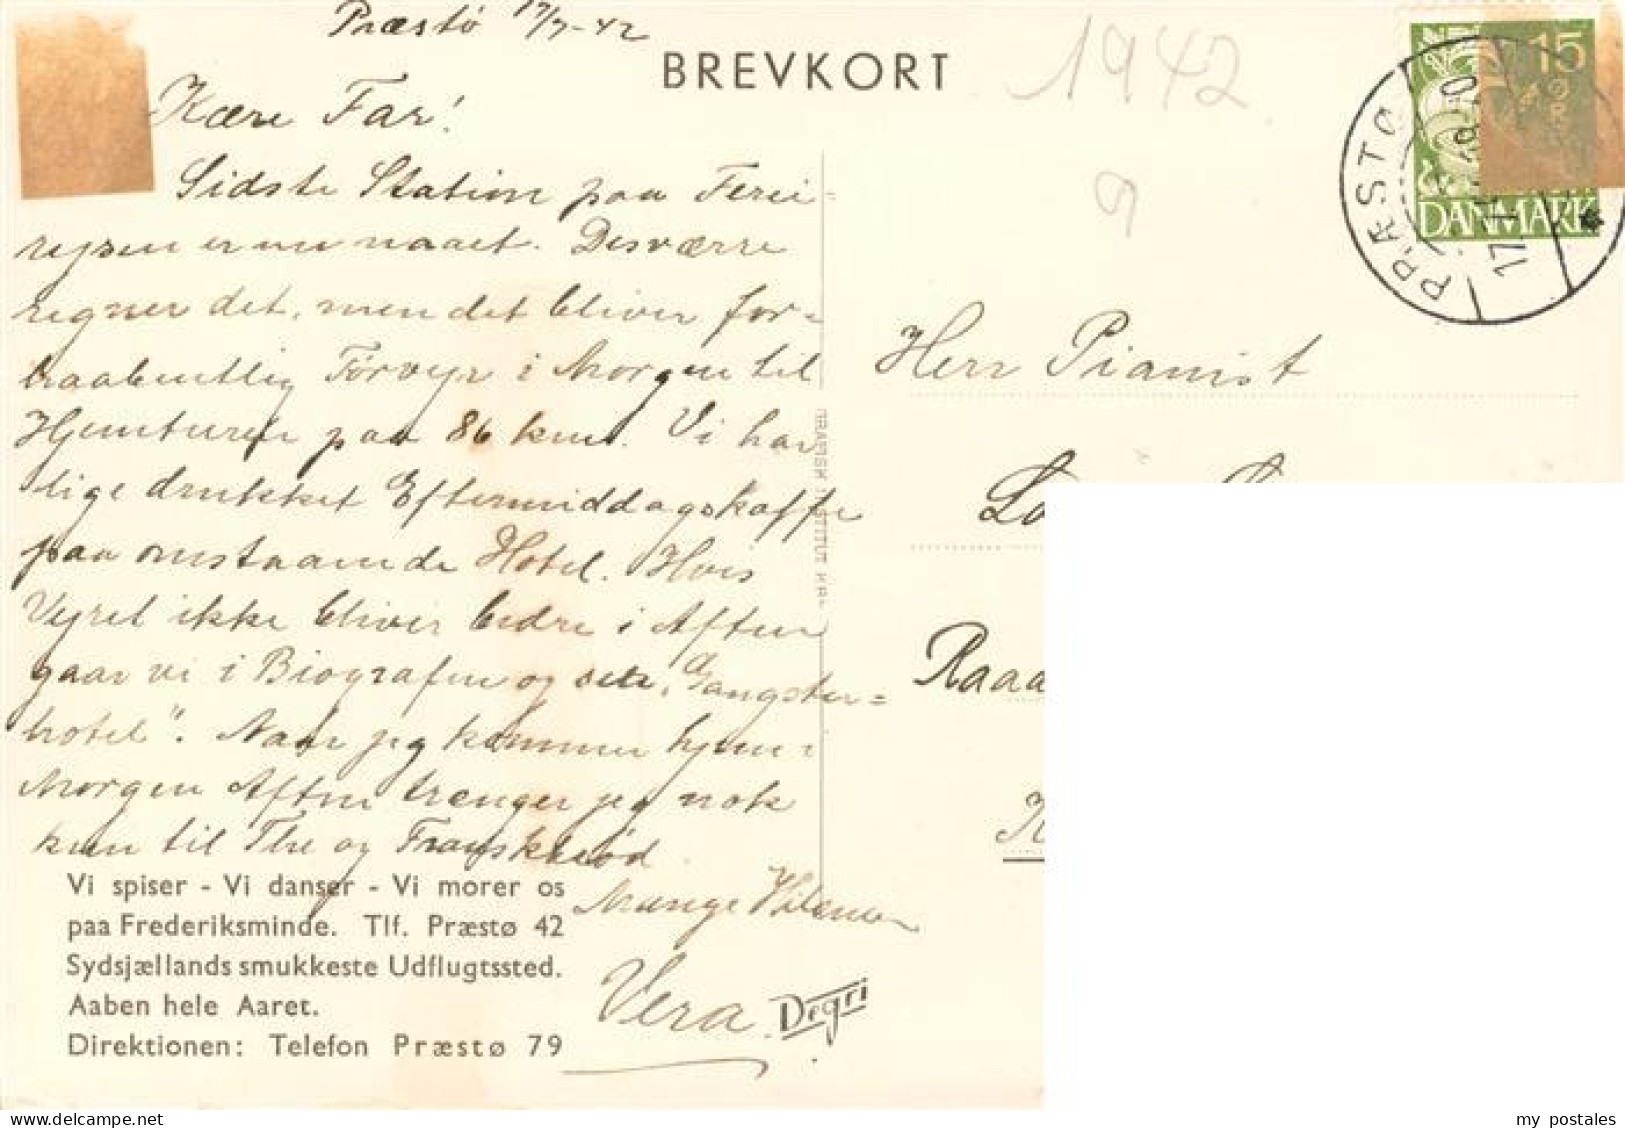 Præstø 17/7-42
BREVKORT
1942
Kære Far!
Sidste Station paa Ferie-
rejsen er nu naaet. Desværre
regner det, men det bliver for-
haabentlig Tørvejr i Morgen til
Hjemturen paa 86 km. Vi har
lige drukket Eftermiddagskaffe
paa omstaaende Hotel. Hvis
Vejret ikke bliver bedre i Aften
gaar vi i Biografen og ser "Gangster=
hotel". Naar jeg kommer hjem i
Morgen Aften trænger jeg nok
kun til The og Franskbrød
Mange Hilsener
Vera
Vi spiser - Vi danser - Vi morer os
paa Frederiksminde. Tlf. Præstø 42
Sydsjællands smukkeste Udflugtssted.
Aaben hele Aaret.
Direktionen: Telefon Præstø 79
Degri
GRAFISK INSTITUT KR.
15
ØRE
DANMARK
PRÆSTØ
9
Herr Pianist
Raaa
my postales